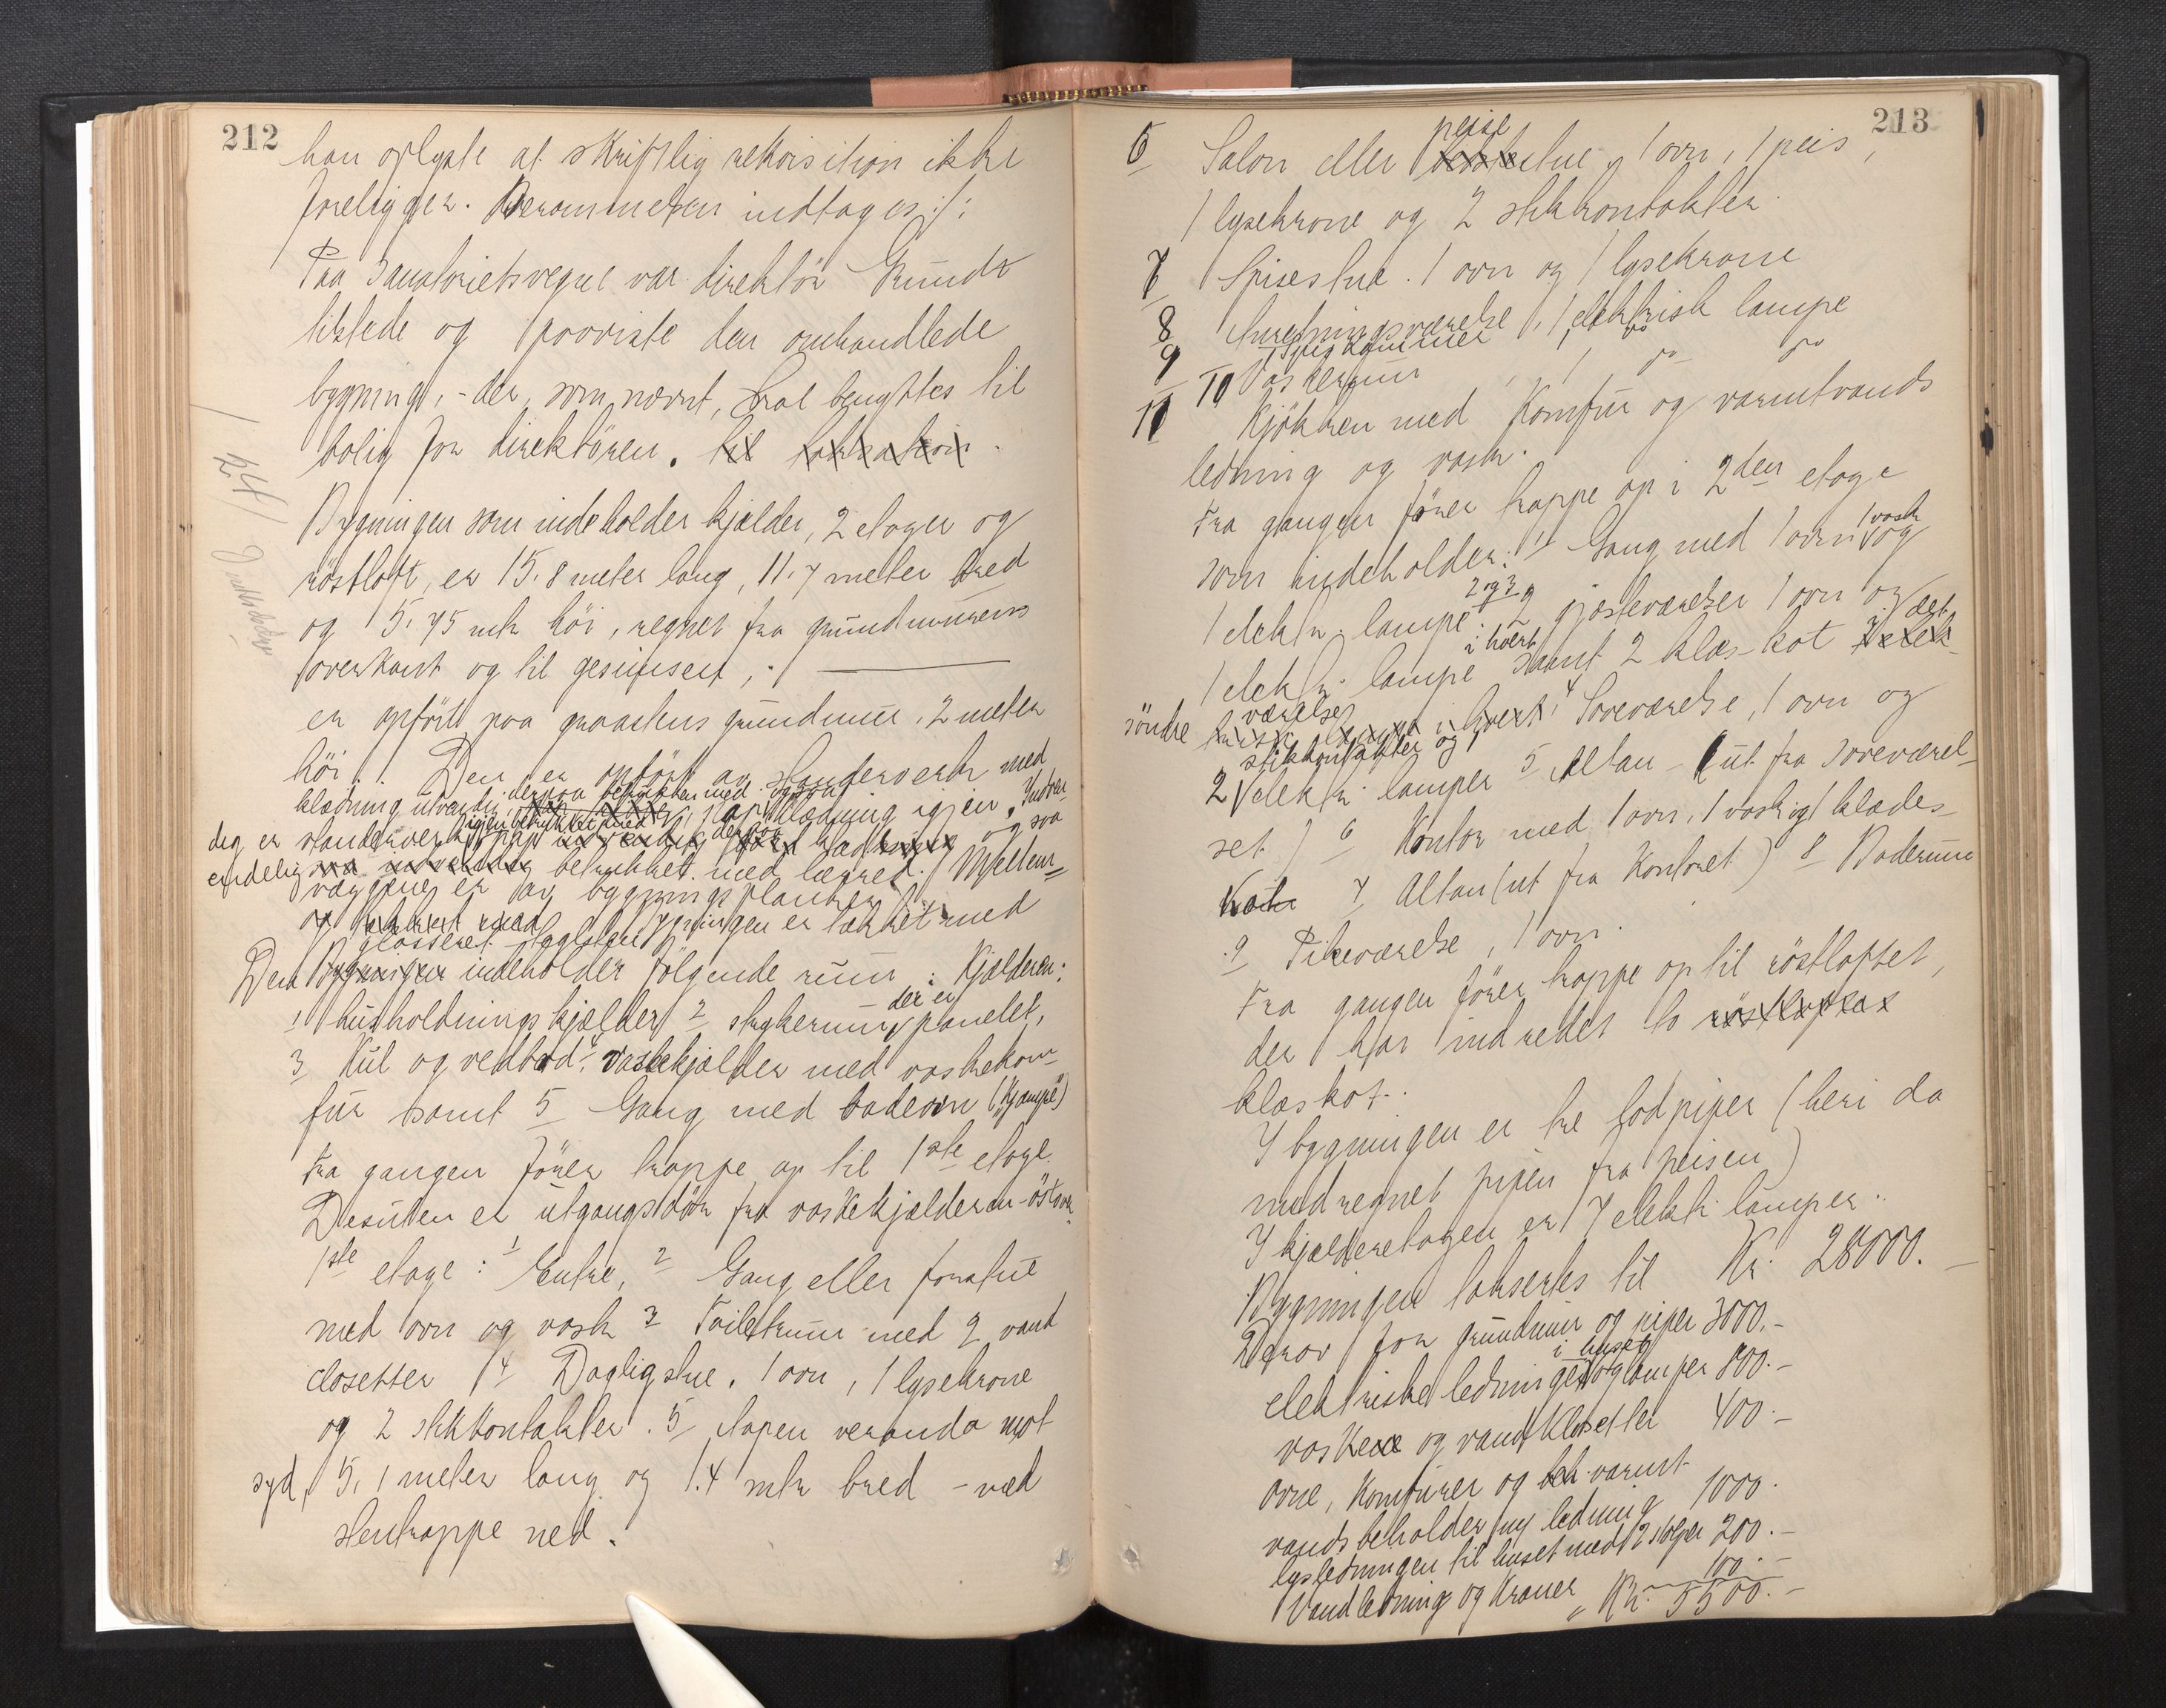 212
han oplyste at skriftlig rekvisition ikke
foreligger. Berammelsen indtages :/:
Paa Sanatoriets vegne var direktör
tilstede og paaviste den omhandlede
bygning, - der, som nævnt, skal benyttes til
bolig for direktören. til
Bygningen som indeholder kjælder, 2 etager og
röstloft, er 15.8 meter lang, 11.7 meter bred
og 5.75 mtr höi, regnet fra grundmurens
overkant og til gesimsen,
er opfört paa graastens grundmur, 2 meter
höi. Den er opfört av stenderverk med
klædning utvendig derpaa betrukken med papklædning igjen. Indven-
dig er stenderverket derpaa og saa
endelig betrukket med lærred. Mellem-
væggene er av bygningsplanker
Bygningen er tækket med
glasseret taglsten
Den Bygningen indeholder fölgende rum: Kjælderen:
1 husholdningskjælder 2 strykerum, der er panelet,
3 Kul og vedbod 4 vaskekjælder med vaskekom-
für samt 5 Gang med badeovn ("Kjæmpe")
Fra gangen förer trappe op til 1ste etage.
Desuten er utgangsdör fra vaskekjælderen - östover.
1ste etage: 1 Entre, 2 Gang eller forstue
med ovn og vask 3 Toiletrum med 2 vand
closetter 4 Dagligstue. 1 ovn, 1 lysekrone
og 2 stikkontakter. 5 Aapen veranda mot
syd, 5,1 meter lang og 1.4 mtr bred - med
stentrappe ned.
213
6 Salon eller peisestue, 1 ovn, 1 peis,
1 lysekrone og 2 stikkontakter.
7 Spisestue. 1 ovn og 1 lysekrone
8 Anretningsværelse, 1 elektrisk lampe
9 Spiskammer 1 do
10 Vaskerum 1 do do
11 Kjökken med Komfür og varmtvands
ledning og vask.
Fra gangen förer trappe op i 2den etage
som indeholder: 1 Gang med 1 ovn 1 vask og
1 elektr. lampe. 2 og 3 2 gjæsteværelser 1 ovn og
1 elektr. lampe i hvert samt 2 klæskot i det
söndre værelse 4 Soveværelse, 1 ovn og
stikkontakter og
2 elektr. lamper 5 Altan (ut fra soveværel-
set) 6 Kontor med 1 ovn, 1 vask og 1 klædes-
7 Altan (ut fra Kontoret) 8 Baderum
9 Pikeværelse, 1 ovn.
Fra gangen förer trappe op til röstloftet,
der har indredet to
klæskot.
I bygningen er tre lodpiper (heri da
medregnet pipen fra peisen)
I kjælderetagen er 7 elektr. lamper.
Bygningen takseres til Kr. 28000.-
Derav for grundmur og piper 3000.-
elektriske ledninger i huset og lamper 800.-
vaske og vandklosetter 400.-
ovne, Komfürer og varmt
vandsbeholder m/ ledning 1000.
lysledningen til huset med 2 stolper 200.-
Vandledning og Kraner 100.-
Kr. 5500.-